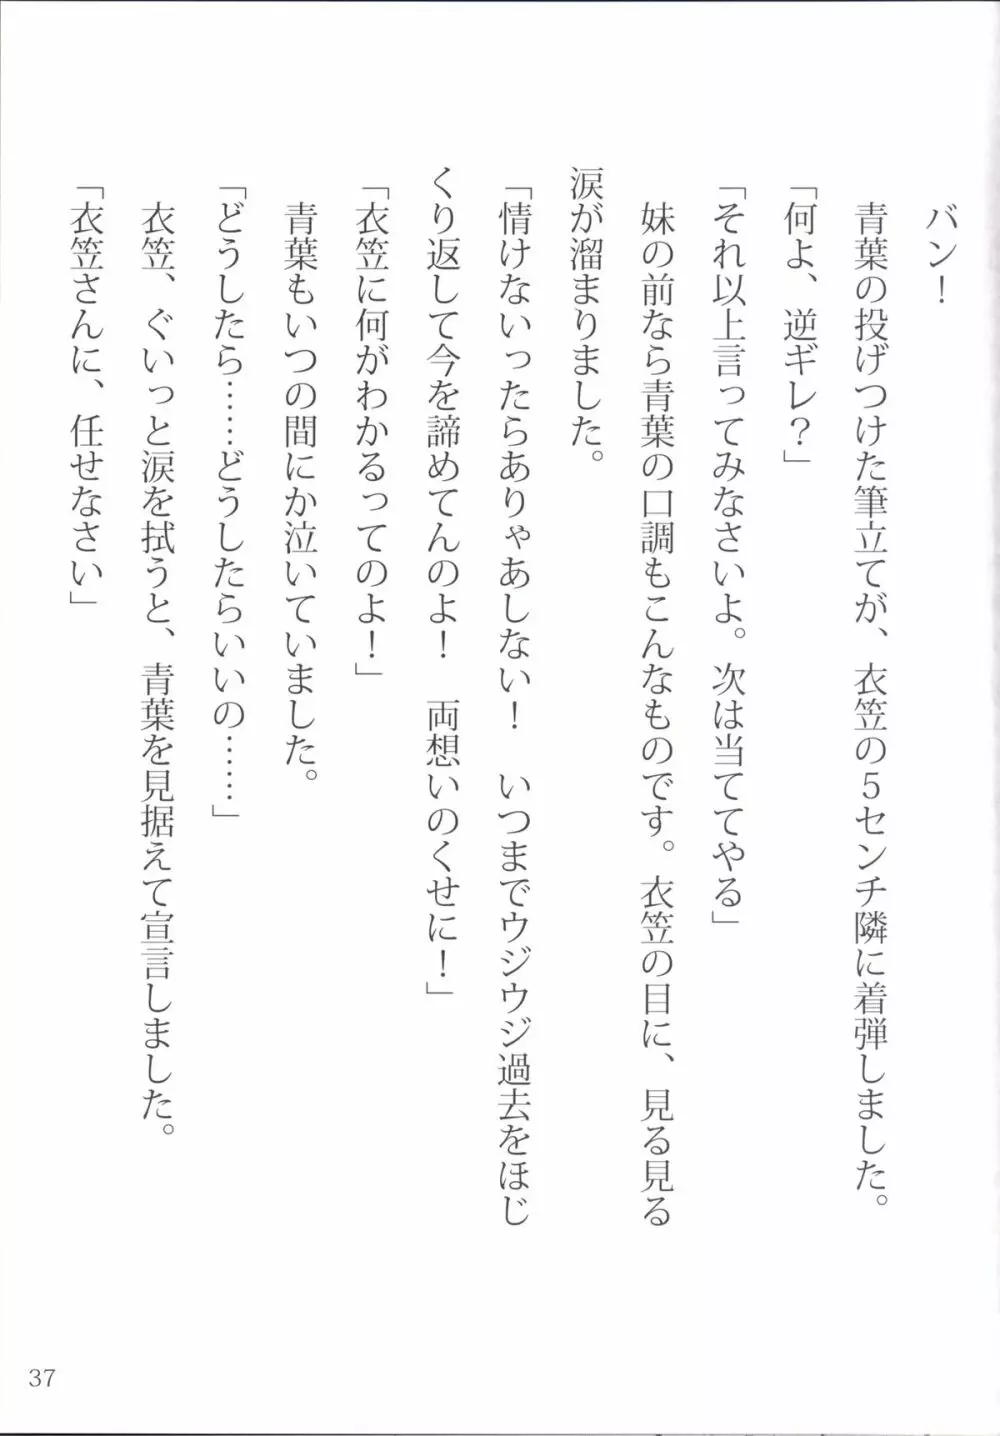 バン！
青葉の投げつけた筆立てが、衣笠の５センチ隣に着弾しました。
「何よ、逆ギレ？」
「それ以上言ってみなさいよ。次は当ててやる」
妹の前なら青葉の口調もこんなものです。衣笠の目に、見る見る
涙が溜まりました。
「情けないったらありゃあしない！　いつまでウジウジ過去をほじ
くり返して今を諦めてんのよ！　両想いのくせに！」
「衣笠に何がわかるってのよ！」
青葉もいつの間にか泣いていました。
「どうしたら……どうしたらいいの……」
衣笠、ぐいっと涙を拭うと、青葉を見据えて宣言しました。
「衣笠さんに、任せなさい」
37